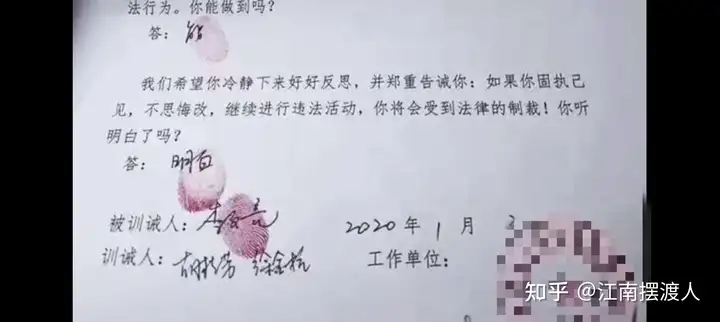 法行为。你能做到吗？
答：能
我们希望你冷静下来好好反思，并郑重告诫你：如果你固执己
见，不思悔改，继续进行违法活动，你将会受到法律的制裁！你听
明白了吗？
答：明白
被训诫人：李文亮 2020年1月3
训诫人： 工作单位：
知乎 @江南摆渡人